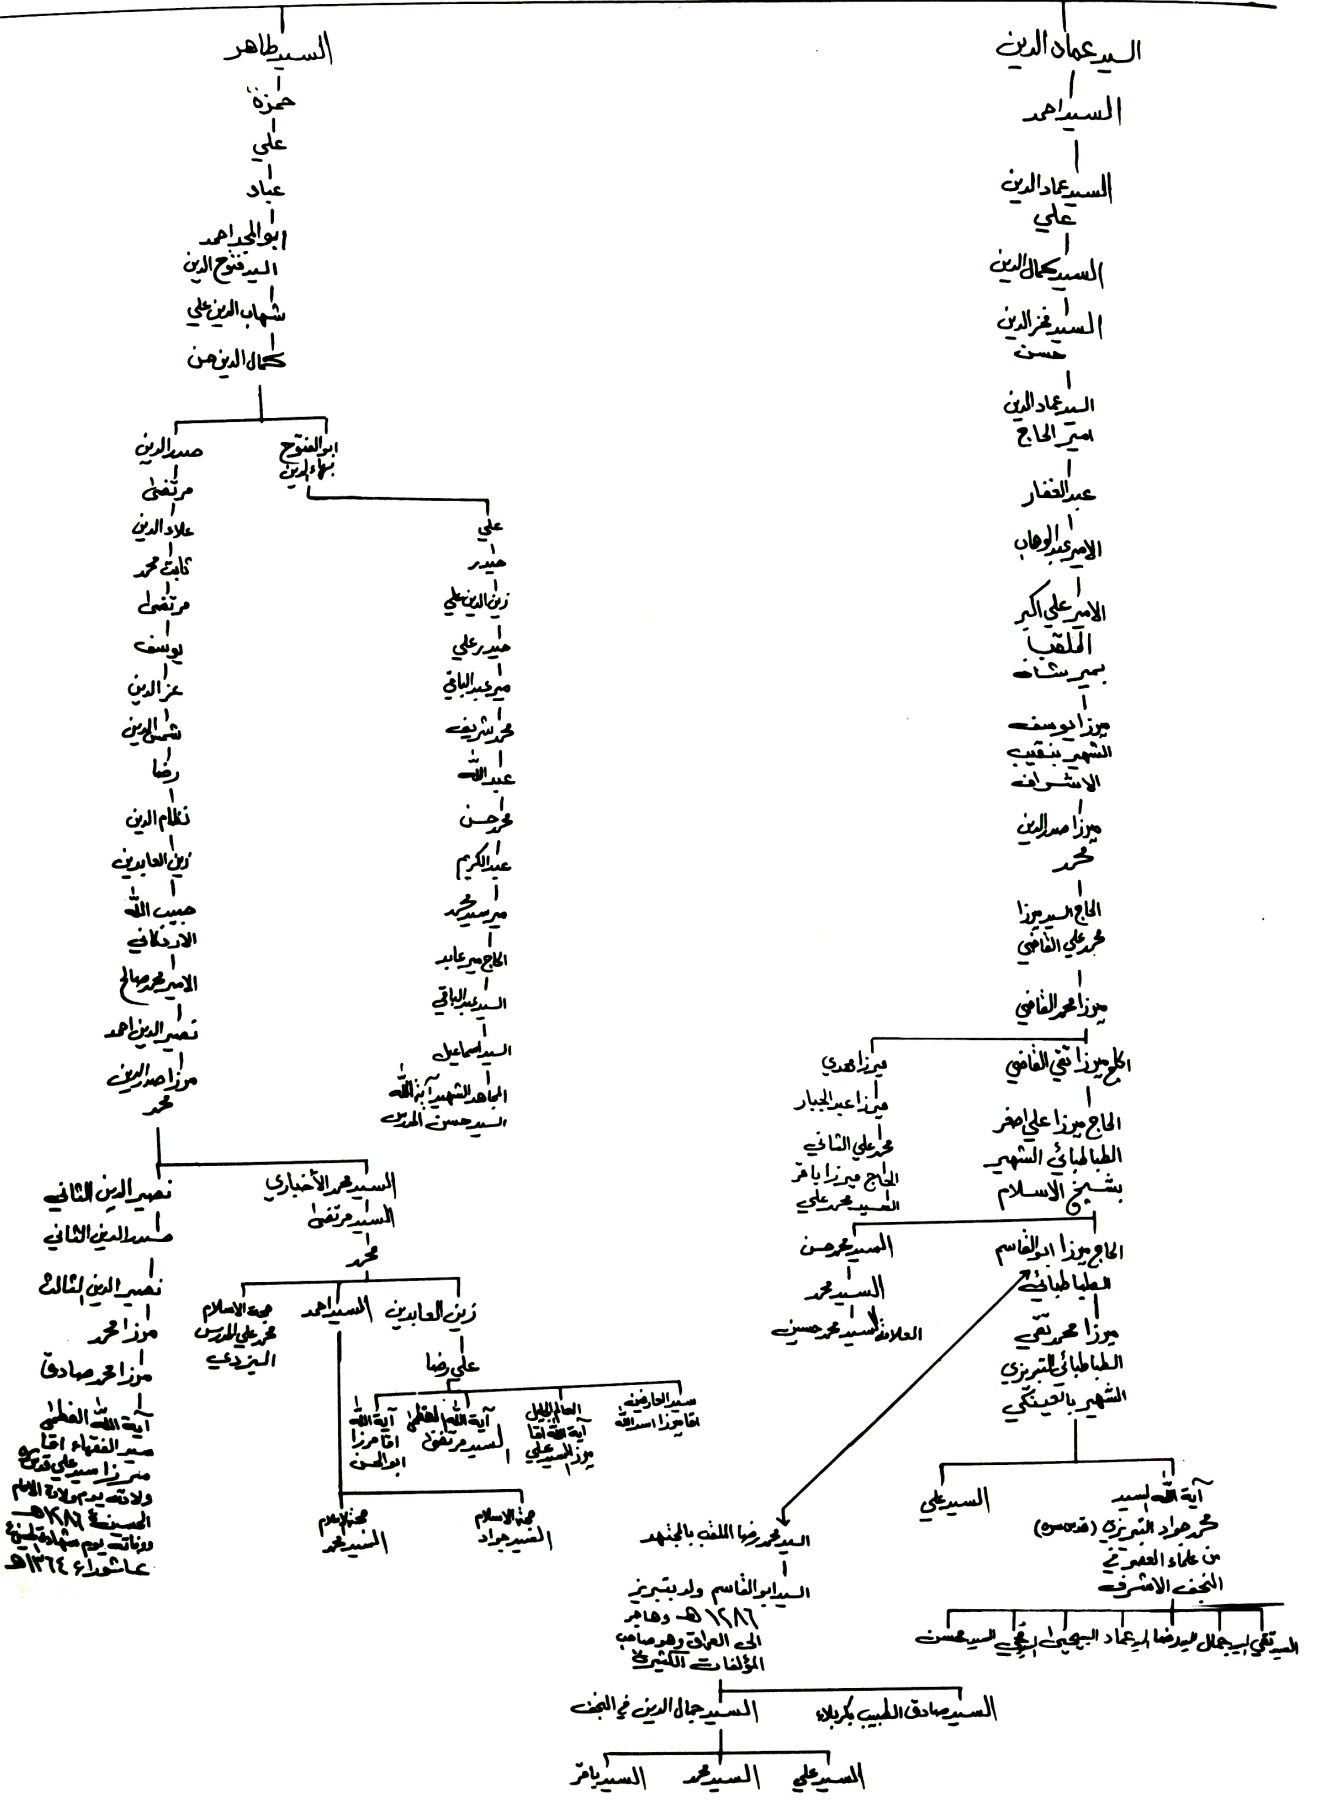 السيد عماد الدين
السيد احمد
السيد عماد الدين
علي
السيد كمال الدين
السيد فخر الدين
حسن
السيد عماد الدين
امير الحاج
عبد الغفار
الامير عبد الوهاب
الامير علي اكبر
الملقب
بمير شاه
ميرزا يوسف
الشهير بنقيب
الاشراف
ميرزا صدر الدين
محمد
الحاج السيد ميرزا
محمد علي القاضي
ميرزا محمد القاضي
الحاج ميرزا تقي القاضي
الحاج ميرزا علي اصغر
الطباطبائي الشهير
بشيخ الاسلام
الحاج ميرزا ابو القاسم
الطباطبائي
ميرزا محمد تقي
الطباطبائي التبريزي
الشهير بالعينكي
آية الله السيد
محمد جواد التبريزي (قدس سره)
من علماء العصر في
النجف الاشرف
السيد تقي السيد جمال السيد رضا السيد عماد السيد يحيى السيد محسن
السيد علي
ميرزا مهدي
ميرزا عبد الجبار
محمد علي الثاني
الحاج ميرزا باقر
السيد محمد علي
السيد محمد حسن
السيد محمد
العلامة السيد محمد حسين
السيد محمد رضا الملقب بالمجتهد
السيد ابو القاسم ولد بتبريز
١٢٨٦ هـ وهاجر
الى العراق وهو صاحب
المؤلفات الكثيرة
السيد صادق الطبيب بكربلاء
السيد جمال الدين في النجف
السيد علي
السيد محمد
السيد باقر
السيد طاهر
حمزة
علي
عباد
ابو المجد احمد
السيد فتوح الدين
شهاب الدين علي
كمال الدين حسن
ابو الفتوح
بهاء الدين
علي
حيدر
زين الدين علي
حيدر علي
مير عبد الباقي
محمد شريف
عبد الله
محمد حسن
عبد الكريم
مير سيد محمد
الحاج مير عابد
السيد عبد الباقي
السيد اسماعيل
المجاهد الشهيد آية الله
السيد حسن المدرس
صدر الدين
مرتضى
علاء الدين
ثابت محمد
مرتضى
يوسف
عز الدين
شمس الدين
رضا
نظام الدين
زين العابدين
حبيب الله
الاردكاني
الامير محمد صالح
نصير الدين احمد
ميرزا صدر الدين
محمد
السيد محمد الأخباري
السيد مرتضى
محمد
زين العابدين
علي رضا
سيد العارفين
اقا ميرزا اسد الله
العالم الجليل
آية الله اقا
ميرزا السيد علي
آية الله العظمى
السيد مرتضى
آية الله
اقا ميرزا
ابو الحسن
السيد احمد
حجة الاسلام
السيد جواد
حجة الاسلام
السيد محمد
حجة الاسلام
محمد علي المدرس
اليزدي
نصير الدين الثاني
صدر الدين الثاني
نصير الدين الثالث
ميرزا محمد
ميرزا محمد صادق
آية الله العظمى
سيد الفقهاء اقا
ميرزا سيد علي قدس سره
ولادته يوم ولادة الامام
الحسين ع ١٢٨٦ هـ
ووفاته يوم شهادة الحسين ع
عاشوراء ١٣٦٤ هـ